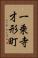 一乗寺
才形町